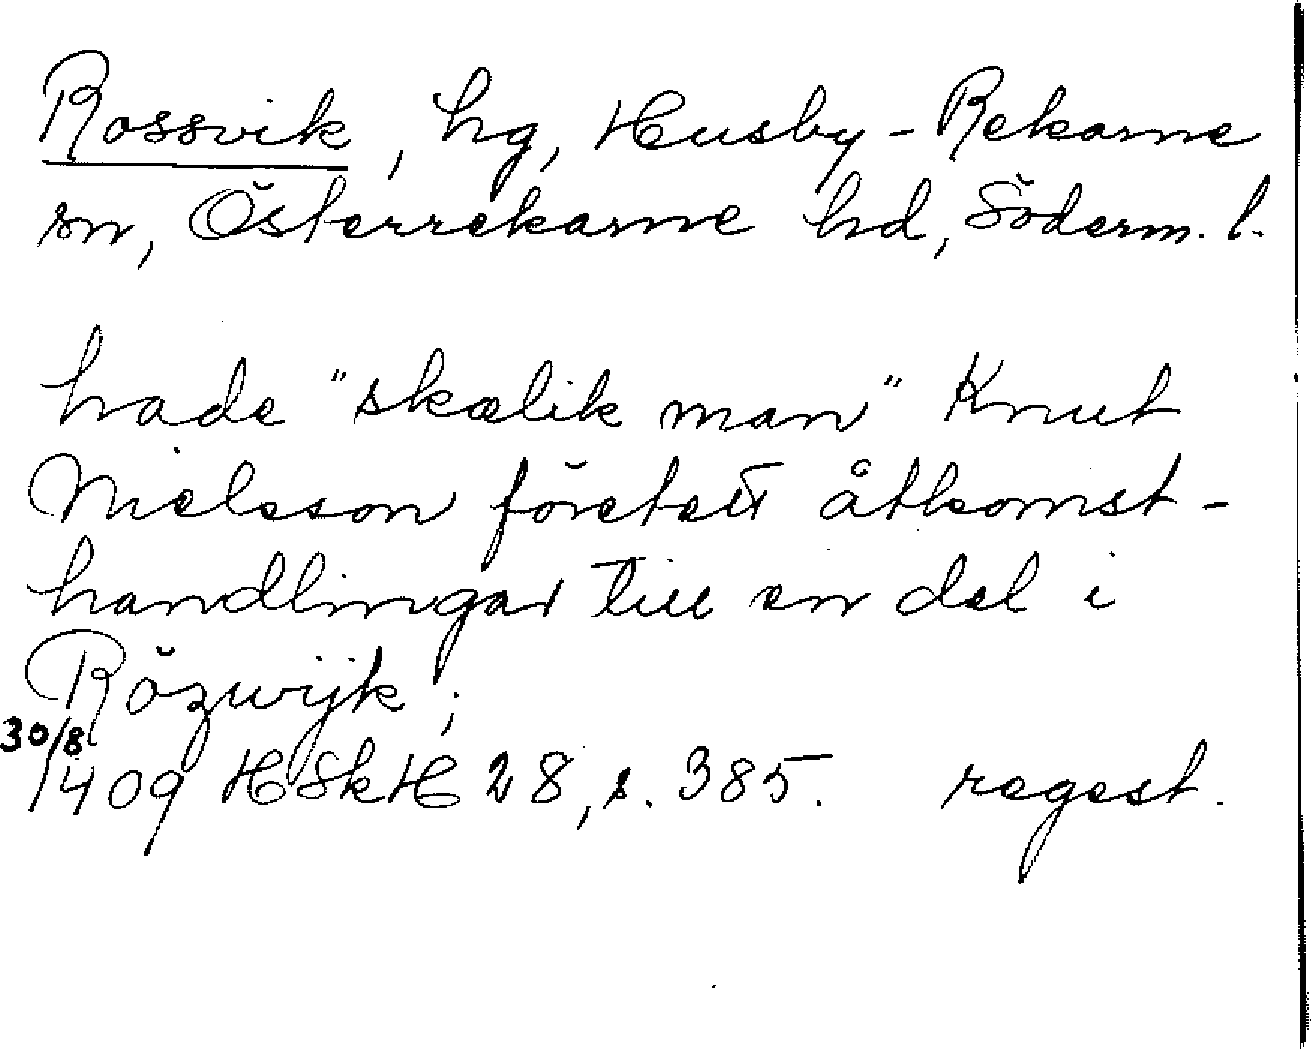 Rossvik, hg, Husby-Rekarne
sn, Österrekarne hd, Söderm. l.
hade "skælik man" Knut
Nielsson företett åtkomst-
handlingar till en del i
Rözwijk;
30/8
1409 HSkH 28, s. 385. regest.